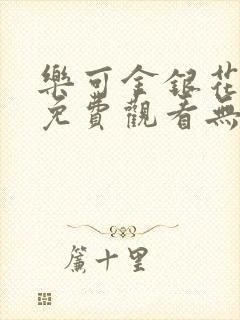 樂可金銀花
免費觀看無
簾十里